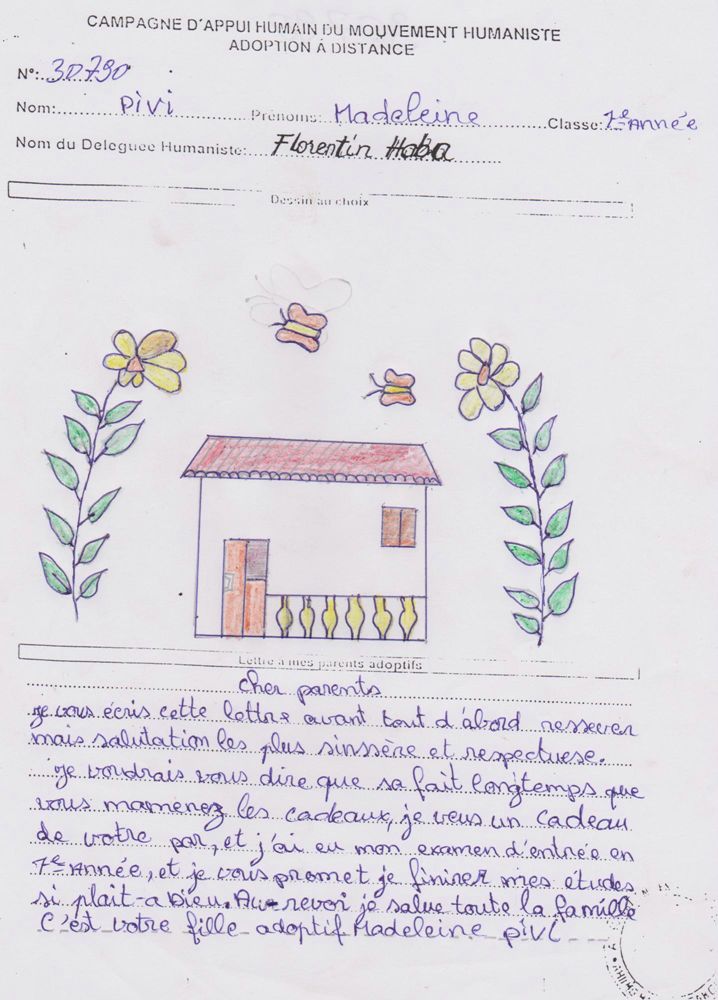 CAMPAGNE D'APPUI HUMAIN DU MOUVEMENT HUMANISTE
ADOPTION À DISTANCE
N°: 30790
Nom: Pivi Prénoms: Madeleine Classe: 7e Année
Nom du Deleguée Humaniste: Florentin Haba
Dessin au choix
Lettre à mes parents adoptifs
cher parents
je vous écris cette lettre avant tout d'abord ressever
mais salutation les plus sinssère et respectuese.
je voudrais vous dire que sa fait longtemps que
vous mamenez les cadeaux, je veus un cadeau
de votre par, et j'ai eu mon examen d'entrée en
7e Année, et je vous promet je finirer mes études
si plait-a Dieu. Au-revoi je salue toute la famille
C'est votre fille adoptif Madeleine pivi